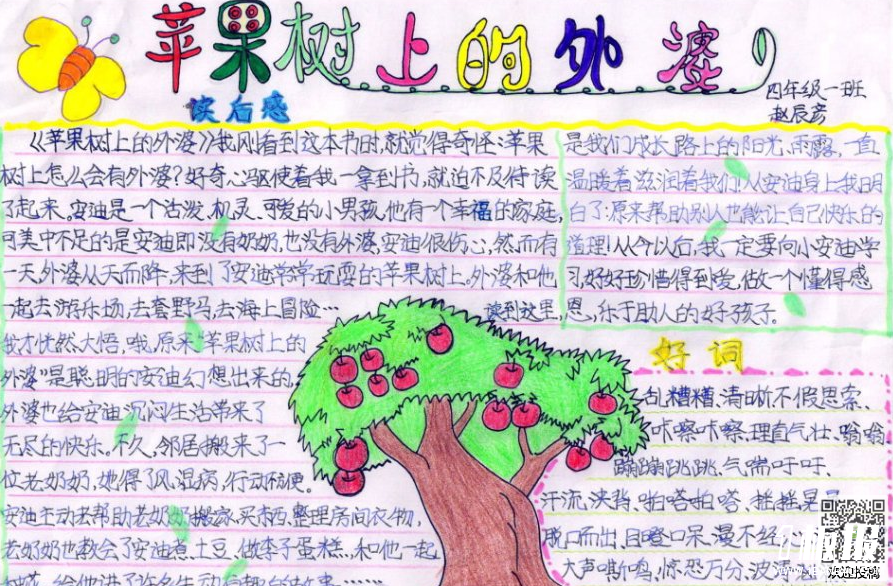 苹果树上的外婆
读后感
四年级一班
赵辰彦
《苹果树上的外婆》我刚看到这本书时,就觉得奇怪:苹果
树上怎么会有外婆?好奇心驱使着我一拿到书,就迫不及待读
了起来。安迪是一个活泼、机灵、可爱的小男孩,他有一个幸福的家庭,
可美中不足的是安迪即没有奶奶,也没有外婆,安迪很伤心,然而有
一天,外婆从天而降,来到了安迪常常玩耍的苹果树上,外婆和他
一起去游乐场,去套野马,去海上冒险… 读到这里,
我才恍然大悟,哦,原来“苹果树上的
外婆”是聪明的安迪幻想出来的,
外婆也给安迪沉闷生活带来了
无尽的快乐。不久,邻居搬来了一
位老奶奶,她得了风湿病,行动不便。
安迪主动去帮助老奶奶搬家、买东西、整理房间衣物,
老奶奶也教会了安迪煮土豆、做李子蛋糕、和他一起
给他讲了许多生动有趣的故事……
是我们成长路上的阳光、雨露,一直
温暖着滋润着我们!从安迪身上我明
白了:原来帮助别人也能让自己快乐的
道理!从今以后,我一定要向小安迪学
习,好好珍惜得到爱,做一个懂得感
恩,乐于助人的好孩子。
好词
乱糟糟、清晰、不假思索、
咔嚓咔嚓、理直气壮、嗡嗡
蹦蹦跳跳、气喘吁吁、
汗流浃背、啪嗒啪嗒、摇摇晃晃
脱口而出、目瞪口呆、漫不经
大声嘶鸣、惊恐万分、波